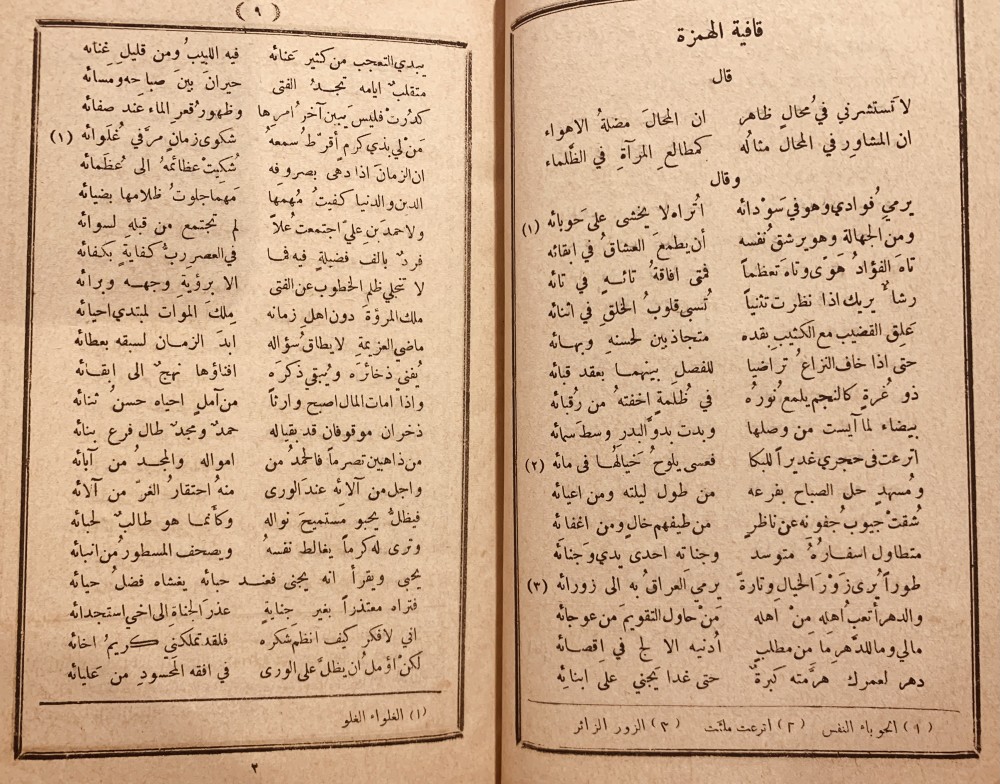 قافية الهمزة
قال
لا تَستشرني في مُحالٍ ظاهر ان المحالَ مضلةُ الاهواء
ان المشاوِر في المحال مثالُه كمطالعِ المرآةِ في الظَّلماء
وقال
يرمي فُوادي وهو في سَوْدائه أتُراه لا يخشى على حَوبائه (١)
ومن الجهالة وهو يرشق نفسه أن يطمعَ العشاقُ في ابقائه
تاهَ الفؤادُ هوًى وتاهَ تعظماً فمتى افاقةُ تائهٍ في تائه
رشأٌ يريك اذا نظرت تثنياً تُسبى قلوبُ الخلقِ في اثنائه
عَلِق القضيب مع الكثيبِ بقده متجاذبين لحسنهِ وبهائه
حتى اذا خاف النزاعُ تراضيا للفصلِ بينهما بعقد قبائه
ذو غُرةٍ كالنجم يلمع نُورهُ في ظُلمةٍ اخفته من رُقبائه
بيضاء لما آيست من وصلها وبدت بدوّ البدر وسطَ سمائه
اترعت في حجري غديراً للبكا فعسى يلوحُ خَيالُها في مائه (٢)
ومُسهدٍ حل الصباح بفرعه من طول ليلته ومن اعيائه
شُقتْ جيوبُ جفونه عن ناظرٍ من طيفهم خالٍ ومن اغفائه
متطاول اسفارُهُ متوسد وجناته احدى يدي وَجنائه
طوراً يُرى زَوْرَ الخيال وتارةً يرمي العراقُ به الى زورائه (٣)
والدهر أتعبُ اهلِه منْ اهله مَنْ حاول التقويمَ من عوجائه
مالي وما للدَّهر ما من مطلبٍ أدنيه الا لج في اقصائه
دهر لعمرك هرَّمته كَبرةٌ حتى غدا يجني على ابنائِه
(١) الحوباء النفس (٢) اترعت ملئت (٣) الزور الزائر
(٩)
يبدي التعجب من كثير عَنائه فيه اللبيبُ ومن قليلِ غِنائه
متقلبٌ ايامه تجدُ الفتى حيرانَ بينَ صباحه ومسائه
كدُرتْ فليسَ يبين آخرُ امرها وظهورُ قعرِ الماء عند صفائه
مَنْ لي بذي كرمٍ أقرّطُ سمعهُ شكوى زمانٍ مرَّ في غُلَوائه (١)
ان الزمانَ اذا دهى بصروفه شُكيتْ عظائمهُ الى عُظَمائه
الدين والدنيا كفيتُ مُهمها مَهما جلوتُ ظلامها بضيائه
ولاحمدَ بنِ عليّ اجتمعت عُلاً لم تجتمع من قبلهِ لسوائه
فردٌ بالف فضيلةٍ فيه فما في العصر ربُّ كفايةٍ بكفائه
لا تنجلي ظلم الخطوب عن الفتى الا برؤيةِ وجههِ وبرائه
ملك المرؤة دون اهل زمانه مِلكَ الموات لمبتدي احيائه
ماضي العزيمةِ لا يطاق سُؤاله ابدَ الزمان لسبقه بعطائه
يُفني ذخائرَه ويُبقي ذكرَه افناؤها نهجٌ الى ابقائه
واذا امات المال اصبح وارثاً من آملٍ احياه حسنُ ثنائه
ذخران موقوفان قد بقيا له حمدٌ ومجدٌ طال فرع بنائه
من ذاهبين تصرما فالحمدُ من امواله والمجدُ من آبائه
واجل من آلائه عند الورى منهُ احتقارُ الغرّ من آلائه
فيظلُّ يحبو مستميحَ نواله وكأنما هو طالبٌ لحبائه
وترى له كرماً يغالط نفسهُ ويصحف المسطورُ من انبائه
يحبى ويقرأ انه يجنى فعند حبائه يغشاه فضلُ حيائه
فتراه معتذراً بغير جنايةٍ عذرَ الجناةِ الى اخي استحدائه
اني لافكر كيف انظم شكره فلقد تملكني كريمُ اخائه
لكنْ اؤملُ ان يظلَّ على الورى في افقه المحسودِ من عليائه
(١) الغلواء الغلو
٢